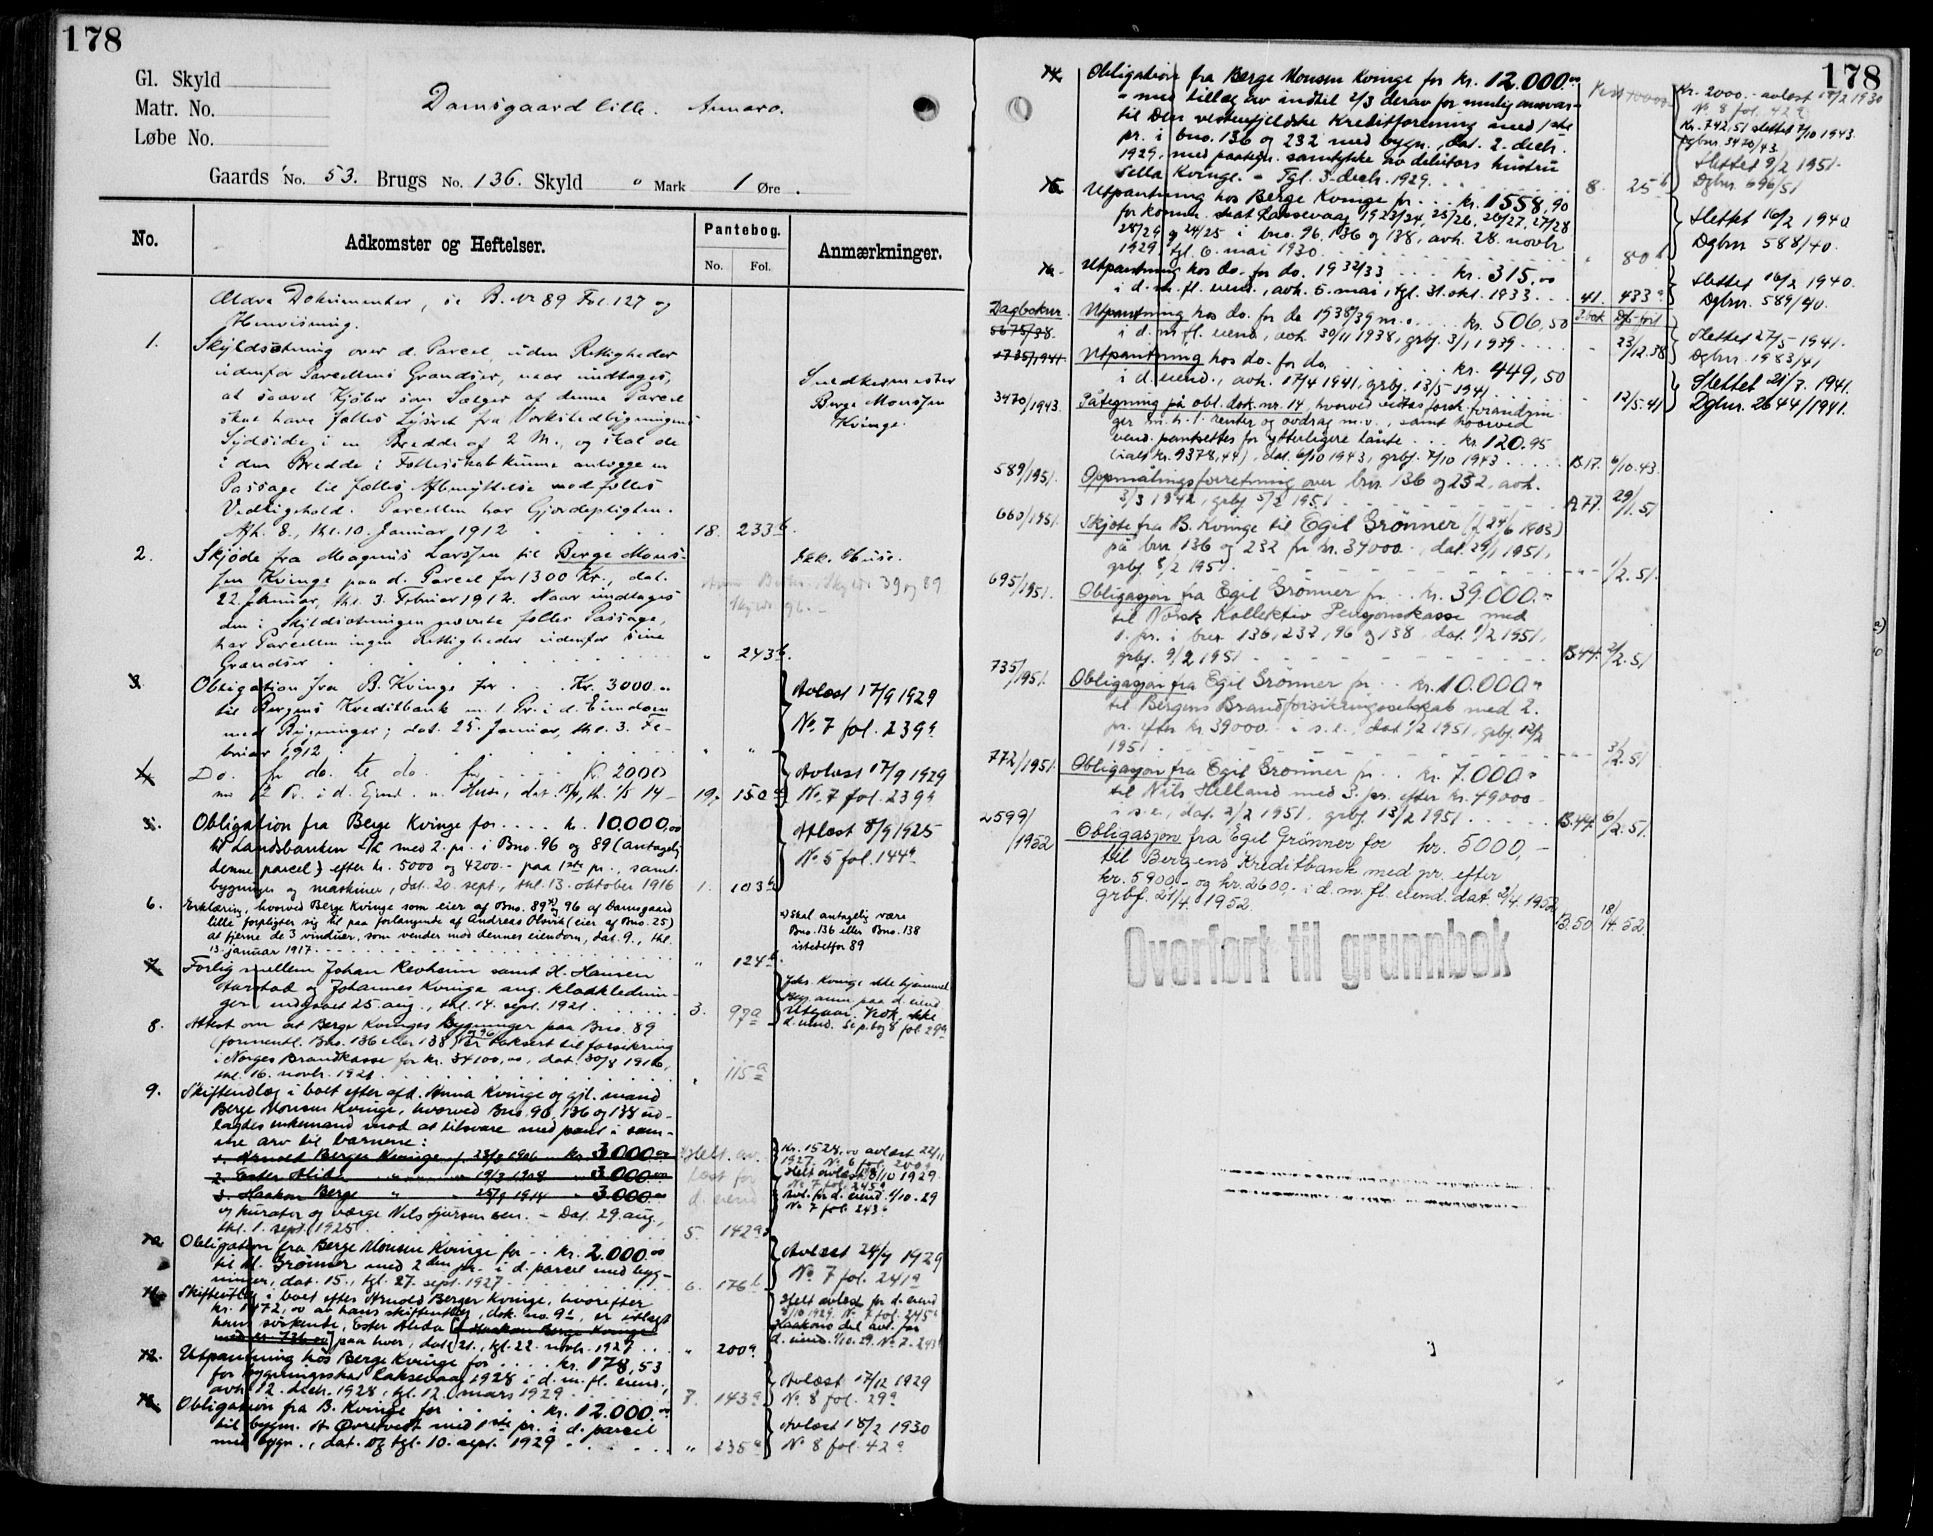 178
Gl. Skyld
Matr. No.
Løbe No.
Damsgaard lille. Annaro.
Gaards No. 53. Brugs No. 136. Skyld " Mark 1 Øre.
No.
Adkomster og Heftelser.
Pantebog.
No. Fol.
Anmærkninger.
Ældre Dokumenter, se B. No 89 Fol. 127 og
Henvisning.
1. Skyldsætning over d. Parcel, uden Rettigheder
udenfor Parcellens Grændser, naar undtages,
at saavel Kjøber som Sælger af denne Parcel
skal have fælles Lysret fra Værkstedbygningens
Sydside, i en Bredde af 2 M., og skal de
i den Bredde i Fællesskab kunne anlægge en
Passage til fælles Afbenyttelse med fælles
Vedligehold. Parcellen har Gjærdepligten.
Afh. 8., thl. 10. Januar 1912 18. 233b.
Snedkermester
Berge Monssen
Kvinge.
2. Skjøde fra Magnus Larssen til Berge Mons-
sen Kvinge paa d. Parcel for 1300 Kr., dat.
22. Januar, thl. 3. Februar 1912. Naar undtages
den i Skyldsætningen nævnte fælles Passage,
har Parcellen ingen Rettigheder udenfor sine
Grændser " 243b.
3. Obligation fra B. Kvinge for Kr. 3000.
til Bergens Kreditbank m. 1. Pr. i d. Eiendom
med Bygninger; dat. 25. Januar, thl. 3. Fe-
bruar 1912 " "
Avlæst 17/9 1929
No. 7 fol. 239a
4. Do. fr do. til do. for Kr. 2000
19. 150
Avlæst 17/9 1929
No. 7 fol. 239a
5. Obligation fra Berge Kvinge for kr. 10.000,00
til Landsbanken A/S med 2. pr. i Bno. 96 og 89 (antagelig
denne parcel) efter kr. 5000 og 4200.- paa 1ste pr., samt
bygninger og maskiner, dat. 20. sept., thl. 13. oktober 1916 1. 103b
Avlæst 8/9 1925
No 5 fol. 144a
6. Erklæring, hvorved Berge Kvinge som eier af Bno. 89 x) og 96 af Damsgaard
lille forpligter sig til paa forlangende af Andreas Olsvik (eier af Bno. 25)
at fjerne de 3 vinduer, som vender mod dennes eiendom, dat. 9., thl.
13. januar 1917 " 124b
x) Skal antagelig være
Bno. 136 eller Bno. 138
istedetfor 89
7. Forlig mellem Johan Revheim samt H. Hansen
Aarstad og Johannes Kvinge ang. kloaklednin-
gen indgaaet 25. aug., thl. 14. sept. 1921. 3. 97a
8. Attest om at Berge Kvinges bygninger paa Bno. 89
(formentl. Bno. 136 eller 138) og 96 er taksert til forsikring
i Norges Brandkasse for kr. 34100,00, dat. 30/8 1916,
thl. 16. novbr. 1921 " 115a
9. Skifteudlæg i boet efter afd. Anna Kvinge og gjl. mand
Berge Monsen Kvinge, hvorved Bno. 96, 136 og 138 ud-
lagdes enkemand mod at tilsvare med pant i sam-
me arv til barnene:
1. Arnold Berger Kvinge f. 28/9 1906 kr. 3000.00
2. Ester Alida " " 19/3 1908 " 3000.00
3. Haakon Berge " " 25/9 1914 " 3000.00
og kurator og værge Nils Gjersensen. - Dat. 29. aug.,
thl. 1. sept. 1925 5. 142a
Kr. 1528,00 avlæst 22/11
1927. No. 6 fol. 200a
Helt avlæst 8/10 1929
No. 7 fol. 245a
Avl. for d. eiend. 1/10-29
No. 7 fol. 243b
10. Obligation fra Berge Monsen Kvinge for kr. 2.000.00
til M. Grønner med 2den pr. i d. parcel med byg-
ninger, dat. 15., tgl. 27. sept. 1927 6. 176b
Avlæst 24/9 1929
No. 7 fol. 241a
11. Skifteutlæg i boet efter Arnold Berger Kvinge, hvorefter
kr. 1472,00 av hans skifteutlæg, dok. no. 9-1, er utlagt
hans søskende, Ester Alida og Haakon Berge Kvinge
med kr. 736.00 paa hver, dat. 21., tgl. 22. novbr. 1927 " 200a
Helt avlæst for d. eiend
8/10 1929. No. 7 fol. 245a
Haakons del avl. for
d. eiend. 1/10.29. No 7. 243b
12. Utpantning hos Berge Kvinge for kr. 178,53
for bygningsskat Laksevaag 1928 i d. m. fl. eiend.,
avh. 12. decbr. 1928, tgl. 12. mars 1929 7. 143a
Avlæst 17/12 1929
No. 8 fol. 29a
13. Obligation fra B. Kvinge for kr. 12.000.00
til bygm. A. Øvretvedt med 1ste pr. i d. parcel
med bygn., dat. og tgl. 10. sept. 1929 " 235a
Avlæst 18/2 1930
No 8 fol. 42a
178
14. Obligation fra Berge Monsen Kvinge for kr. 12.000.00
- med tillæg av indtil 2/3 derav for mulig ansvar -
til Den vestenfjeldske Kreditforening med 1ste
pr. i bno. 136 og 232 med bygn., dat. 2. decbr.
1929, med paategn. samtykke av debitors hustru
Sella Kvinge. - Tgl. 3. decbr. 1929 8. 25b
Kr. 2000.- avlæst 18/2 1930
No. 8 fol. 42a
Kr. 742,51 slettet 7/10 1943.
Dgbnr. 3470/43.
Slettet 9/2 1951.
Dgbnr. 696/51
15. Utpantning hos Berge Kvinge for kr. 1558,90
for komm. skat Laksevaag 1923/24, 25/26, 26/27, 27/28
28/29 og 24/25 i bno. 96, 136 og 138, avh. 28. novbr
1929, tgl. 6. mai 1930 " 80b
Slettet 16/2 1940
Dgbnr. 588/40.
16. Utpantning hos do. for do. 1932/33 kr. 315,00
i d. m. fl. eiend., avh. 5. mai, tgl. 31. okt. 1933 41. 433a
Slettet 16/2 1940.
Dgbnr. 589/40.
Dagboknr.
5675/38. Utpantning hos do. for do 1938/39 m.v. kr. 506,50
i d. m. fl. eiend., avh. 30/11 1938, grbf. 3/1 1939 - 23/12.38
Slettet 27/5-1941.
Dgbnr. 1983/41
1735/1941. Utpantning hos do. for do. kr. 449,50
i d. eiend., avh. 17/4 1941, grbf. 13/5 1941 - 12/5.41
Slettet 21/7. 1941.
Dgbnr. 2644/1941.
3470/1943. Påtegning på obl. dok. nr. 14, hvorved vedtas forsk. forandrin-
ger m.h.t. renter og avdrag m.v., samt hvorved
eiend. pantsettes for ytterligere lånte kr. 120.95
(ialt kr. 9378,44), dat. 6/10 1943, grbf. 7/10 1943 B.17. 6/10.43.
589/1951. Oppmålingsforretning over bnr. 136 og 232, avh.
3/3 1942, grbf. 5/2 1951 A77. 29/1.51
660/1951. Skjøte fra B. Kvinge til Egil Grønner (f. 24/6 1903)
på bnr. 136 og 232 for kr. 34000.-, dat. 29/1 1951,
grbf. 8/2 1951. - - - 1/2.51.
695/1951. Obligasjon fra Egil Grønner for kr. 39.000.-
til Norsk Kollektiv Pensjonskasse med
1. pr. i bnr. 136, 232, 96 og 138, dat. 1/2 1951,
grbf. 9/2 1951 B.44. 2/2.51
735/1951. Obligasjon fra Egil Grønner for kr. 10.000.-
til Bergens Brandforsikringsselskab med 2.
pr. efter kr. 39000.- i s.e., dat. 1/2 1951, grbf. 12/2
1951 - - - 3/2.51
772/1951. Obligasjon fra Egil Grønner for kr. 7.000.-
til Nils Helland med 3. pr. efter kr. 49000.-
i s.e., dat. 2/2 1951, grbf. 13/2 1951 B.44. 6/2.51.
2599/1952 Obligasjon fra Egil Grønner for kr. 5000,-
til Bergens Kreditbank med pr. efter
kr. 5900,- og kr. 2600,- i d. m. fl. eiend. dat. 2/4. 1952
grbf. 21/4. 1952 B.50 18/4.52.
Overført til grunnbok